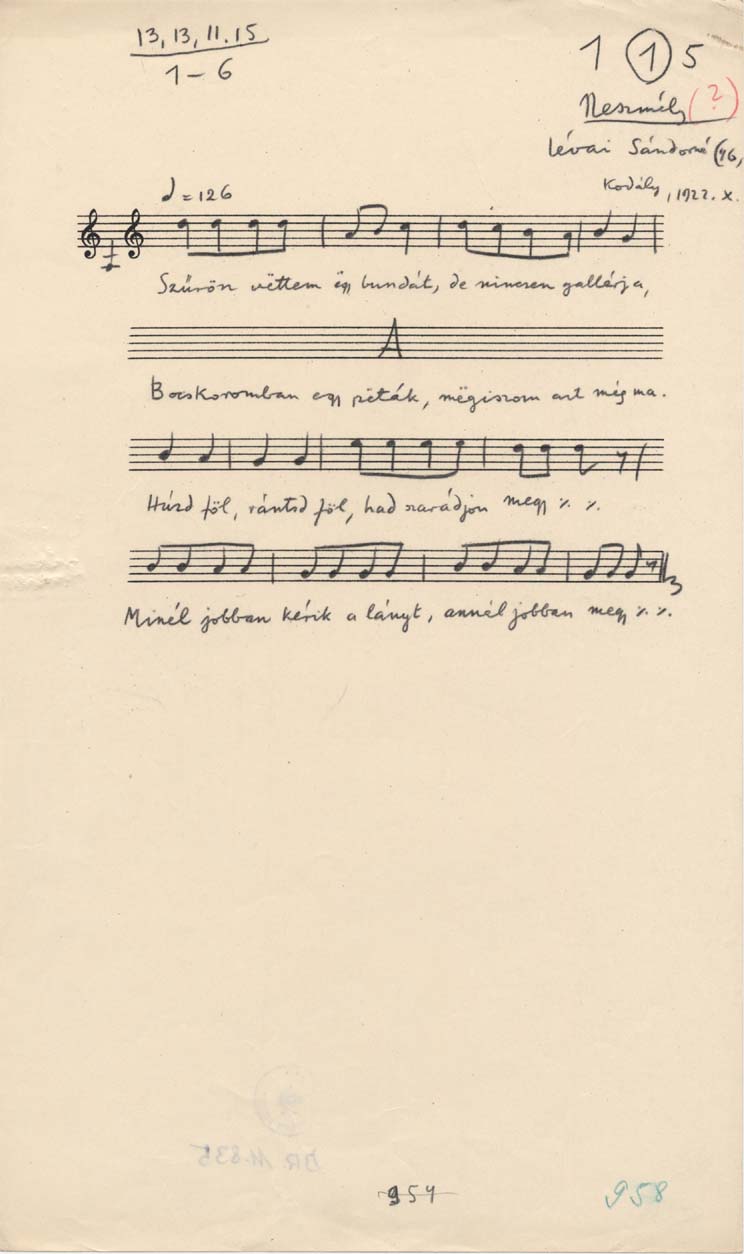 13, 13, 11. 15
1 – 6
1 1 5
Neszmély (?)
Lévai Sándorné (46,
Kodály, 1922. X.
= 126
Szűrön vëttem ëgy bundát, de nincsen gallérja,
A
Bocskoromban egy pëták, mëgiszom azt még ma.
Húzd föl, rántsd föl, had szarádjon megy % %
Minél jobban kérik a lányt, annél jobban megy % %.
BR 11.835
954
958